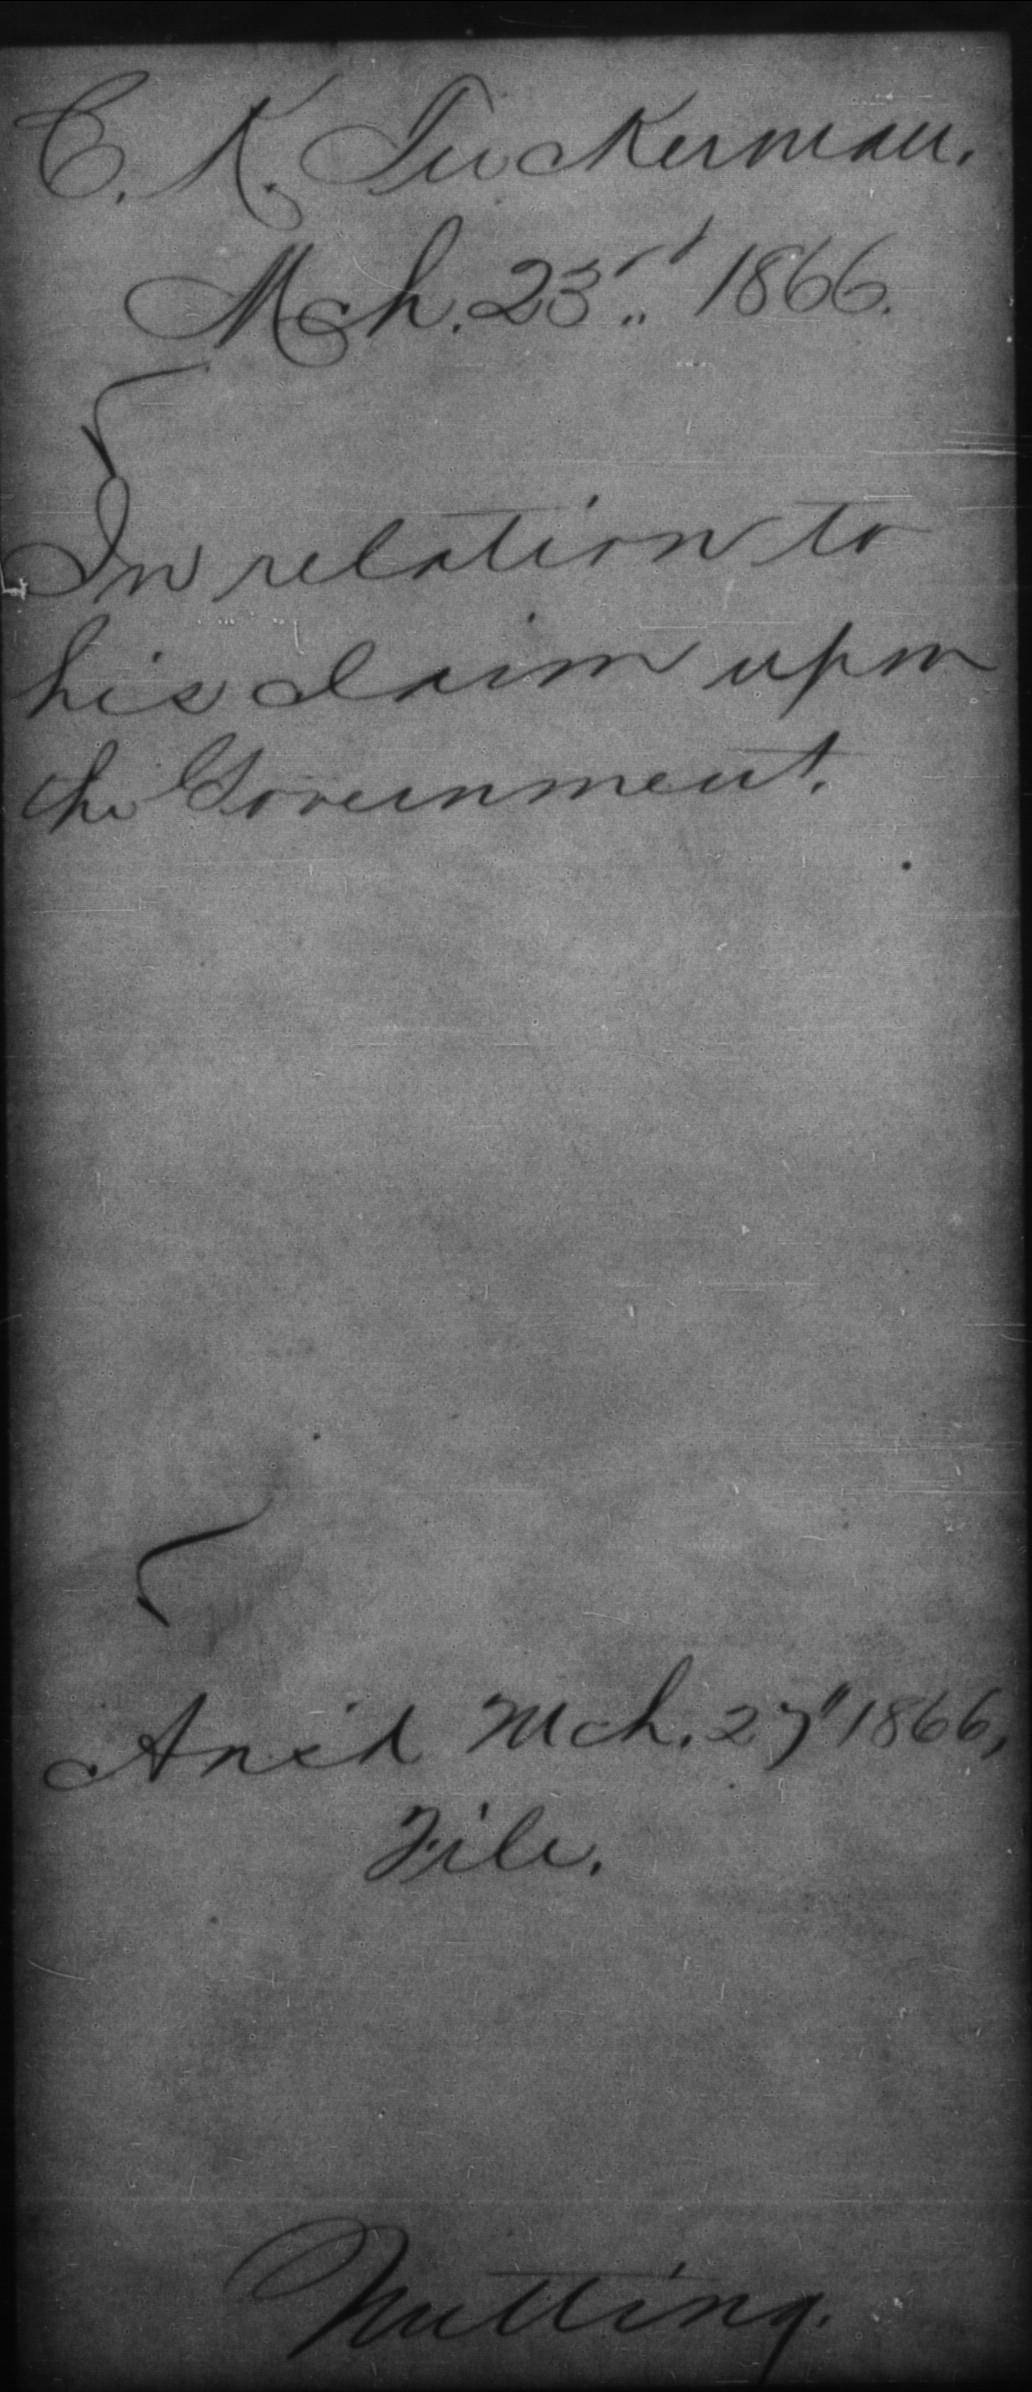 C. K. Tuckerman.
Mch. 23rd 1866.
In relation to
his claim upon
the Government.
Ans'd Mch. 27" 1866,
File.
Nutting.